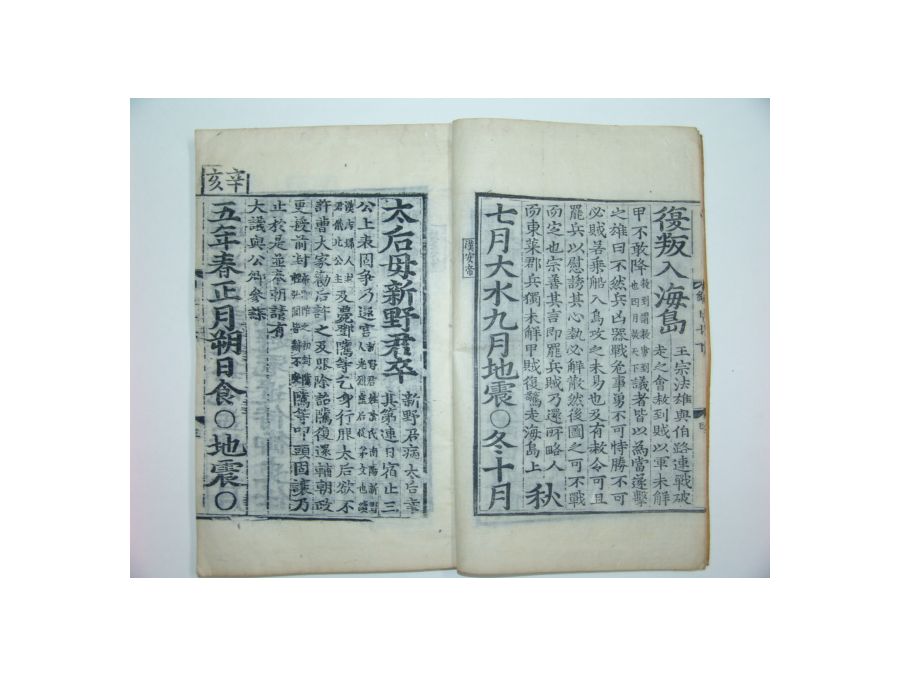 復叛入海島
王宗法雄與伯路連戰破
走之會赦到賊以軍未解
甲不敢降
議者皆以為當遂擊
之雄曰不然兵凶器戰危事勇不可恃勝不可
必賊善乘船入島攻之未易也及有赦令可且
罷兵以慰誘其心埶必解散然後圖之可不戰
而定也宗善其言即罷兵賊乃還所略人
而東萊郡兵獨未解甲賊復驚走海島上
秋
七月大水九月地震○冬十月
漢安帝
太后母新野君卒
新野君病太后幸
其第連日宿止三
公上表固爭乃還宮
及薨鄧騭等乞身行服太后欲不
許曹大家勸后許之及服除詔騭復還輔朝政
更授前封
騭等叩頭固讓乃
止於是並奉朝請有
大議與公卿參謀
辛亥
五年春正月朔日食○地震○